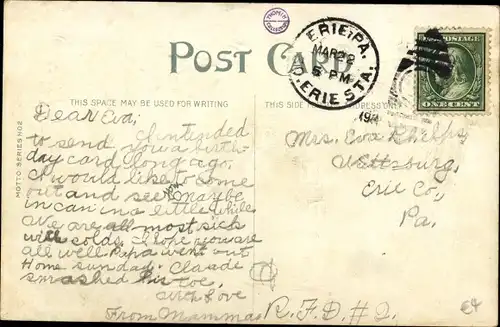 POST CARD
THIS SPACE MAY BE USED FOR WRITING
THIS SIDE
MOTTO SERIES NO 2
ERIE, PA.
MAR 29
5 PM
ERIE STA.
191
U.S. POSTAGE
ONE CENT
Dear Eva;
I intended
to send you a birth-
day card long ago.
I would like to come
out and see you maybe
I can in a little while
We are all most sick
with colds. I hope you are
all well. Papa went out
Home sunday. Claude
smashed his toe.
with Love
From Mamma
Mrs. Eva
Wattsburg,
Erie Co.,
Pa.
R.F.D. #2.